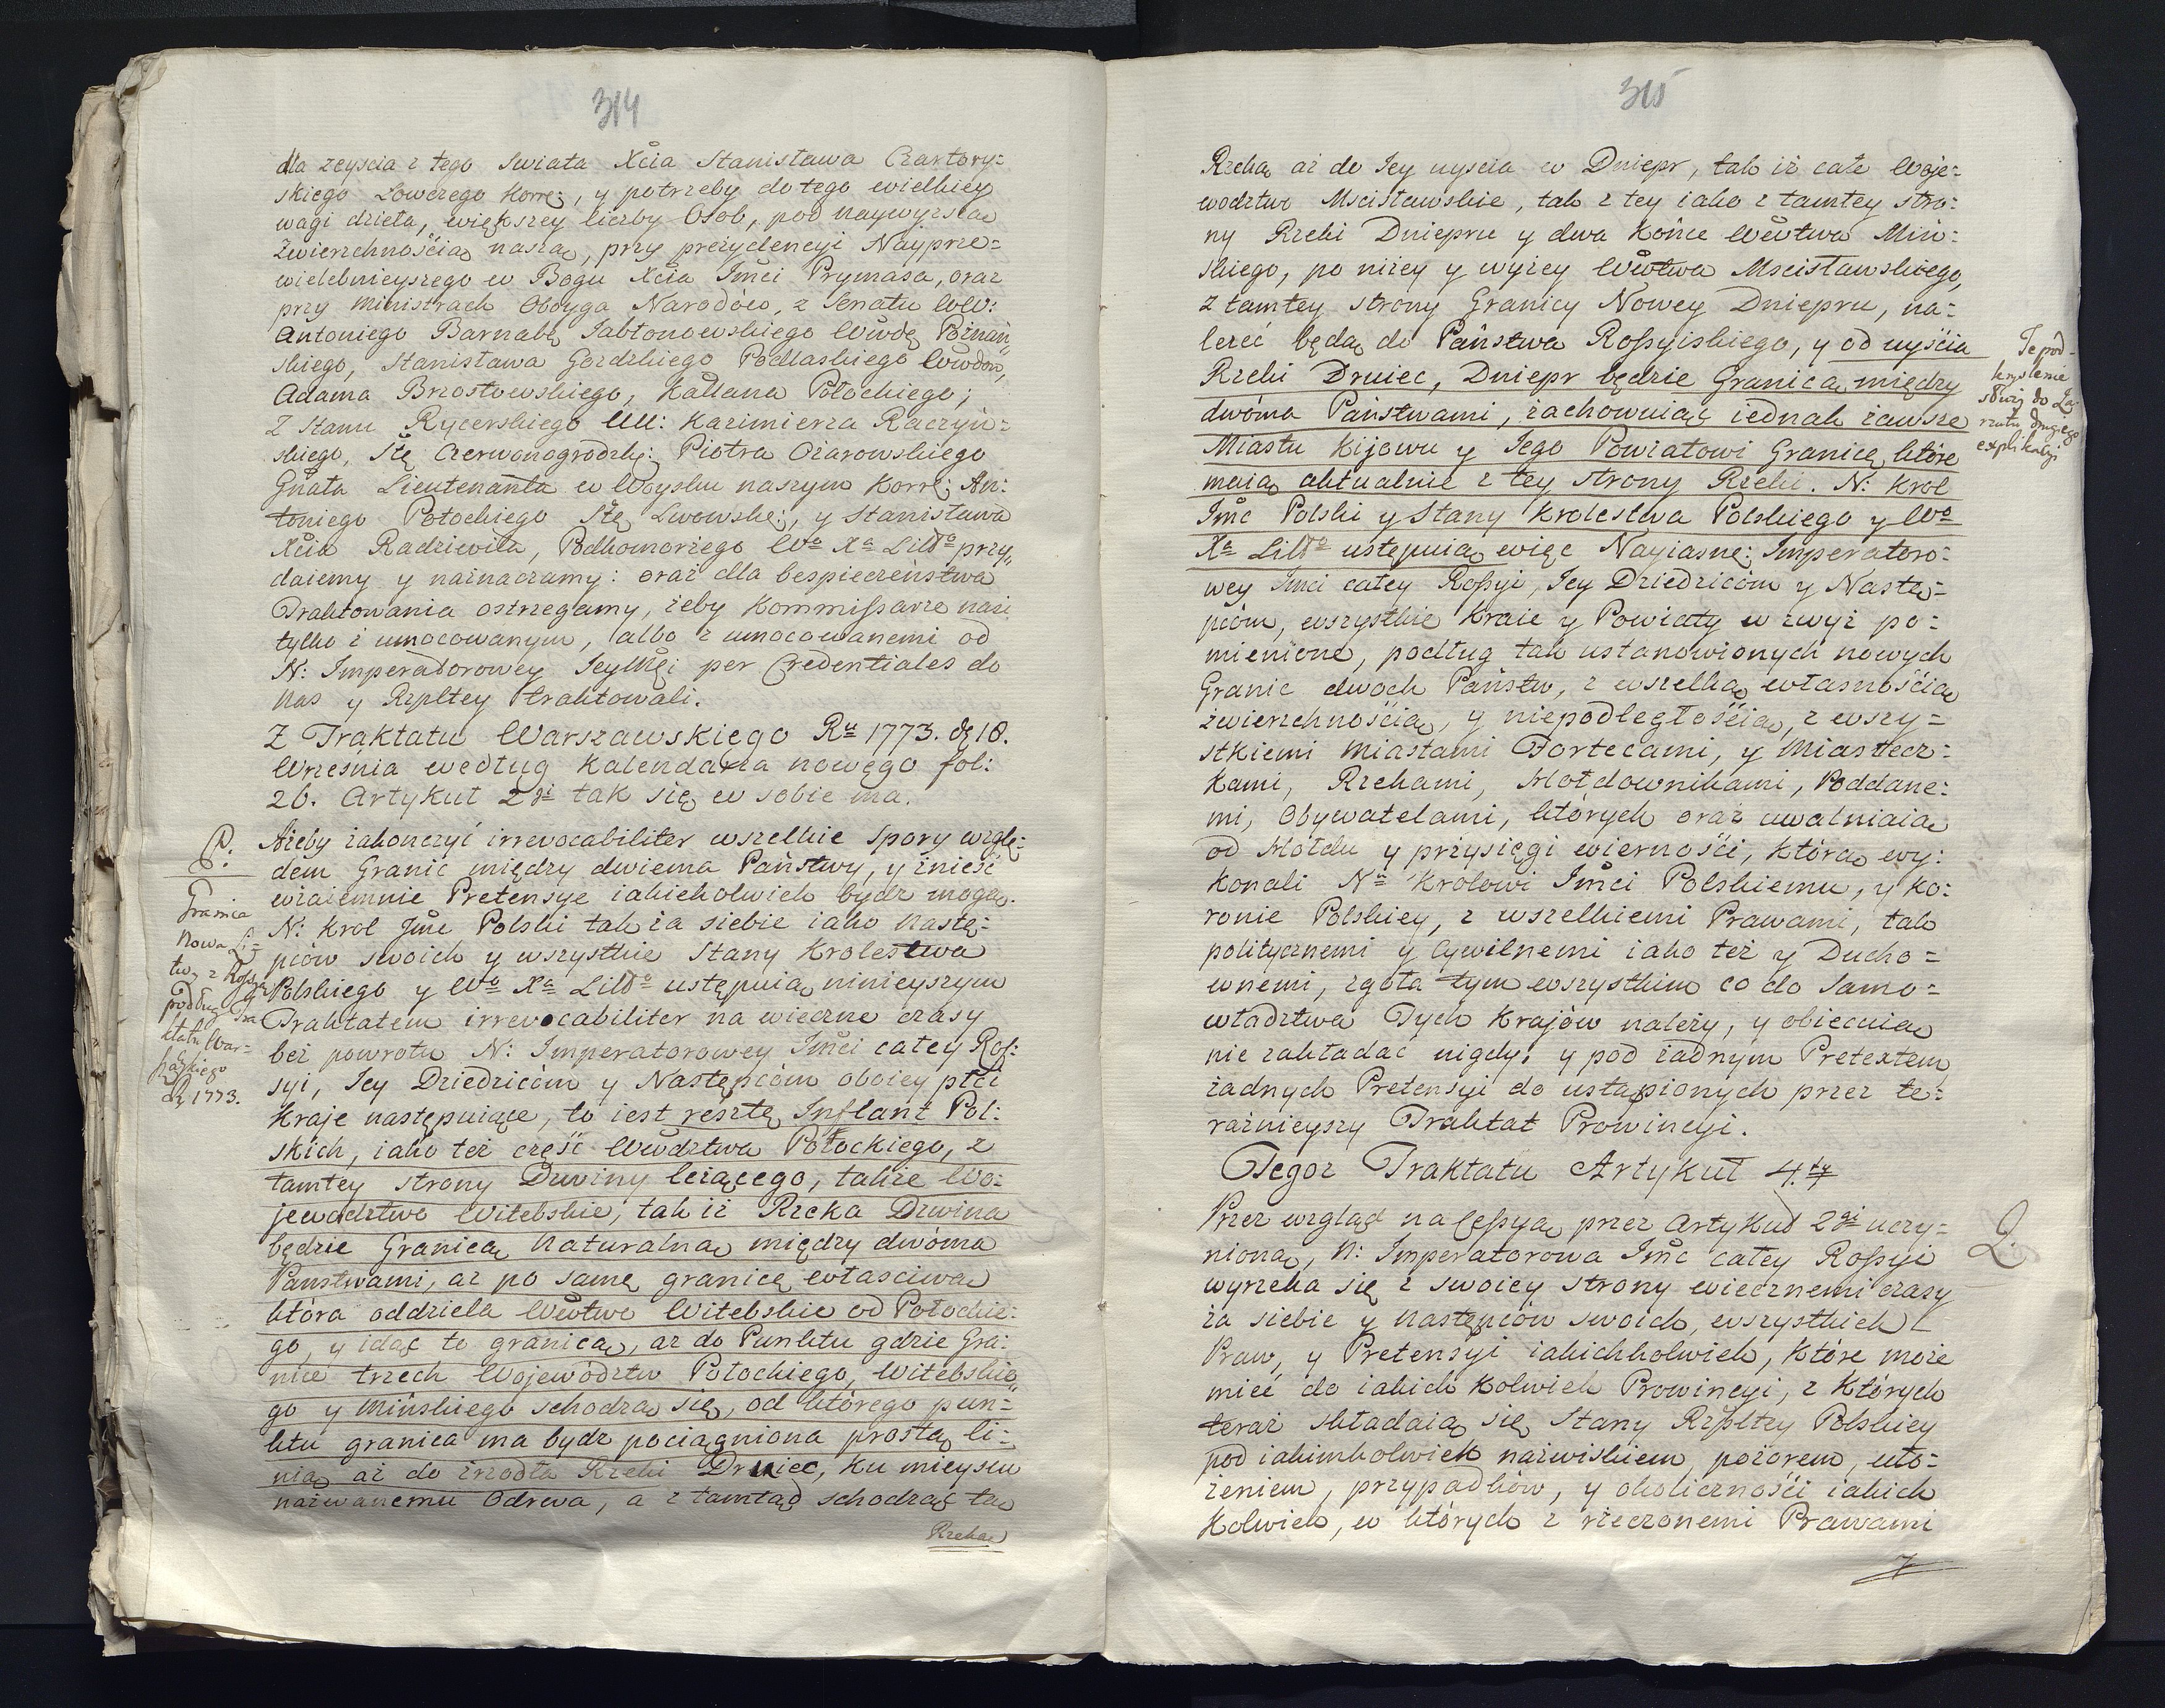 314
dla zeyscia z tego Swiata Xcia Stanisława Czartory=
skiego Łowczego Korrę:, y potrzeby do tego wielkiey
wagi dzieła, większey liczby Osob, pod naywyższą
Zwierzchnością naszą, przy prezydencyi Nayprze=
wielebnieyszego w Bogu Xcia Imci Prymasa, oraz
przy Ministrach Oboyga Narodów, z Senatu WW:
Antoniego Barnabę Jabłonowskiego Wwdę Poznań
skiego, Stanisława Gozdzkiego Podlaskiego Wwdow,
Adama Brzostowskiego, Kasztlana Połockiego;
Z Stanu Rycerskiego UU: Kazimierza Raczyń=
skiego, Stę Czerwonogrodzk: Piotra Ożarowskiego
Gnała Lieutenanta w Woysku naszym Korrę: An:
toniego Potockiego Stę Lwowskę:, y Stanisława
Xcia Radziwiła, Podkomorzego Wo Xa Littо przy,
daiemy y naznaczamy: oraz dla bespieczeństwa
Traktowania ostrzegamy, żeby Kommissarze nasi
tylko z umocowanym, albo z umocowanemi od
N: Imperatorowey JeyMći per Credentiales do
Nas y Rzpltey traktowali.
Z Traktatu Warszawskiego Ru 1773. dę 18.
Września według Kalendarza nowego fol:
26. Artykuł 2gi tak się w sobie ma.
P.
Ażeby zakonczyć irrevocabiliter wszelkie Spory wzglę=
dem Granic między dwiema Państwy, y znieść
wzaiemnie Pretensye iakiekolwiek bydz mogą.
N: Krol Jmć Polski tak za siebie iako Nastę=
pców swoich y wszystkie Stany Krolestwa
Polskiego y Wo Xa Litto ustępuią ninieyszym
Traktatem irrevocabiliter na wieczne czasy
bez powrotu N: Imperatorowey Imci całey Ros:
syi, Jey Dziedzicóm y Następcóm oboiey płci
Kraje następuiące, to iest resztę Inflant Pol:
skich, iako też część Wwdztwa Połockiego, z
tamtey strony Dwiny leżącego, także Wo=
jewodztwo Witebskie, tak iż Rzeka Dzwina
będzie Granicą Naturalną między dwóma
Panstwami, aż po samę granicę własciwą
która oddziela Wwtwo Witebskie od Połockie:
go, y idąc tą granicą, aż do Punktu gdzie Gra:
nice trzech Wojewodztw Połockiego, Witebskie
go y Mińskiego schodzą się, od którego pun=
ktu granica ma bydz pociągniona prostą li=
nią aż do źrzodła Rzeki Druiec, Ku mieyscu
nazwanemu Ordwa, a z tamtąd schodząc tą
Rzeką
Granica
Nowa Li=
twy z Rossyą
podług Tra
ktatu War=
szaskiego
Ru 1773.
315
Rzeką aż do Jey uyscia w Dniepr, tak iż całe Woje=
wodztwo Mscisławskie, tak z tey iako z tamtey stro:
ny Rzeki Dniepru y dwa Końce Wwtwa Miń:
skiego, po niżey y wyżey Wwtwa Mscisławskiego,
z tamtey strony Granicy Nowey Dniepru, na=
leżeć będą do Państwa Rossyiskiego, y od uyścia
Rzeki Druiec, Dniepr będzie Granicą między
dwóma Państwami, zachowuiąc iednak zawsze
Miastu Kijowu y Jego Powiatowi Granicę które
maią aktualnie z tey strony Rzeki. N: Krol
Jmć Polski y Stany Krolestwa Polskiego y Wo
Xa Litto ustępuią więc Nayiasne: Imperatoro=
wey Jmci całey Rossyi, Jey Dziedzicóm y Nastę=
pcóm, wszystkie Kraie y Powiaty w zwyż po=
mienione, podług tak ustanowionych nowych
Granic dwoch Państw, z wszelką własnością
zwierzchnością, y niepodległością, z wszy=
stkiemi Miastami Fortecami, y Miastecz:
kami, Rzekami, Hołdownikami, Poddane:
mi, Obywatelami, których oraz uwalniaią
od Hołdu y przysięgi wierności, którą wy:
konali Nu Krolowi Jmci Polskiemu, y Ko=
ronie Polskiey, z wszelkiemi Prawami, tak
politycznemi y Cywilnemi iako też y Ducho=
wnemi, zgoła tym wszystkim co do Samo=
władztwa Tych Krajów należy, y obiecuią
nie zakładać nigdy: y pod żadnym Pretextem
żadnych Pretensyi do ustąpionych przez te=
raźnieyszy Traktat Prowincyi.
Tegoz Traktatu Artykuł 4.ty
Przez wzgląd na Cessyą przez Artykuł 2gi uczy=
nioną, N: Imperatorowa Jmć całey Rossyi
wyrzeka się z swoiey strony wiecznemi czasy
za siebie y Następców swoich, wszystkich
Praw, y Pretensyi iakichkolwiek, Które może
mieć do iakich Kolwiek Prowincyi, z Których
teraz składaią się Stany Rzpltey Polskiey
pod iakimkolwiek nazwiskiem, pozorem, uło=
żeniem, przypadków, y okoliczności iakich
Kolwiek, w których z rzeczonemi Prawami
Te pod-
kryslenie
służy do Za
rzutu drugiego
explikacyi
2.